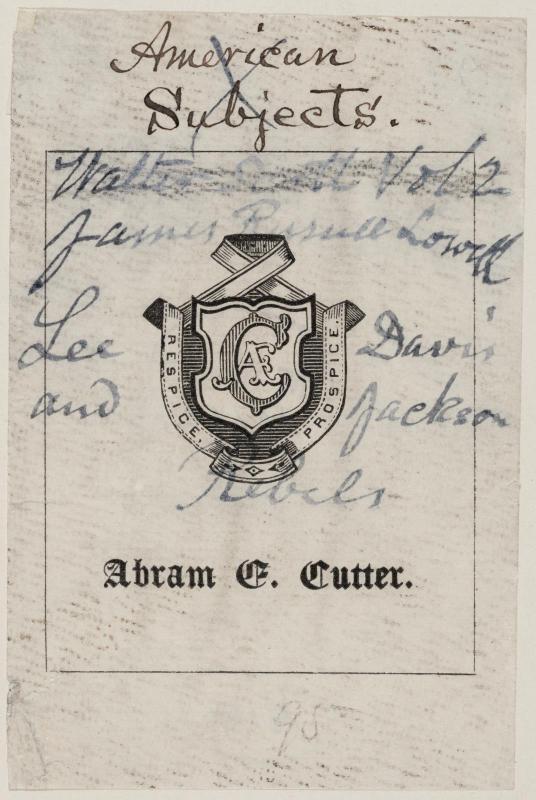 American
Subjects.
Walter Scott Vol 2
James Russell Lowell
Lee Davis
and Jackson
Rebels
RESPICE, PROSPICE.
CAE
Abram E. Cutter.
95